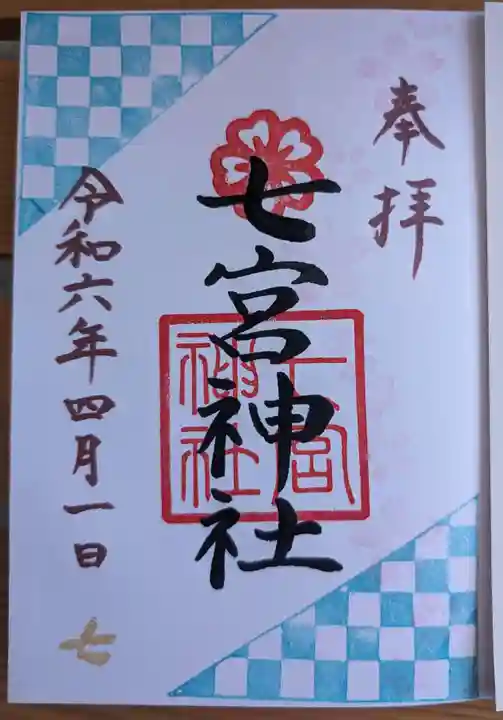 奉拝
七宮神社
七宮
神社
令和六年四月一日
七